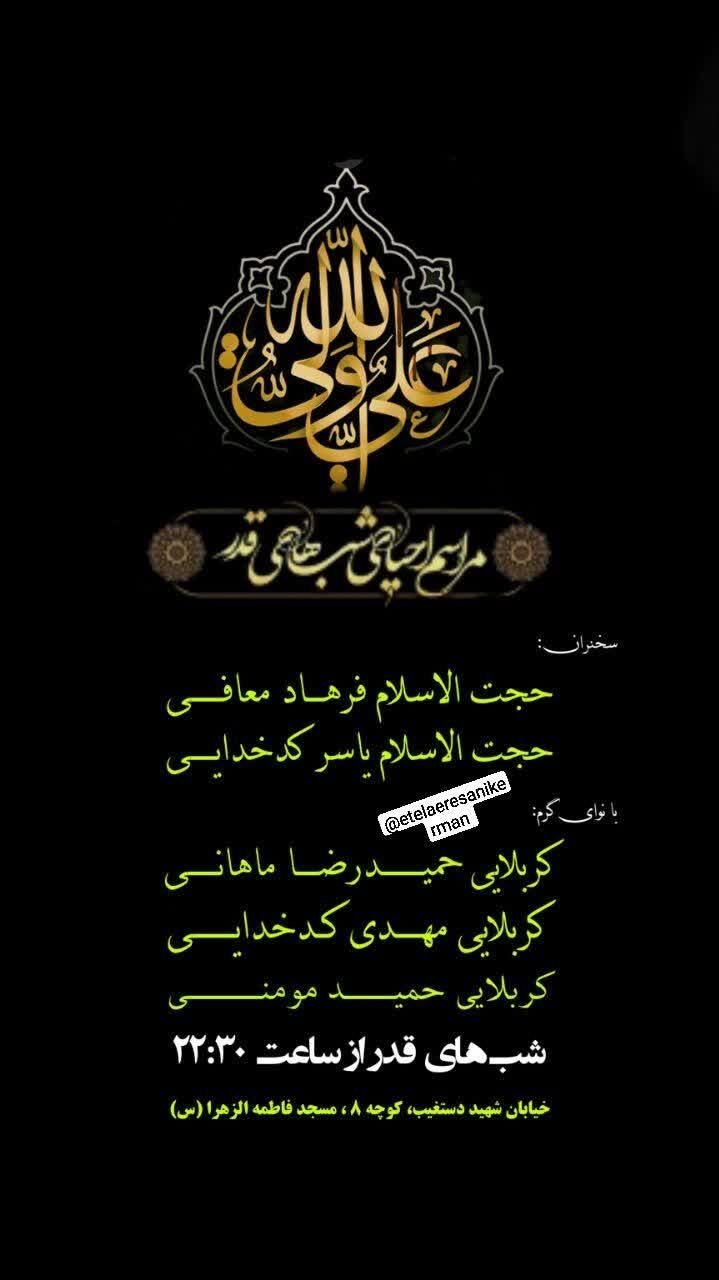 علی ولی الله
مراسم احیای شب های قدر
سخنران:
حجت الاسلام فرهاد معافی
حجت الاسلام یاسر کدخدایی
@etelaeresanike
rman
با نوای گرم:
کربلایی حمیدرضا ماهانی
کربلایی مهدی کدخدایی
کربلایی حمید مومنی
شب‌های قدر از ساعت ۲۲:۳۰
خیابان شهید دستغیب، کوچه ۸ ، مسجد فاطمه الزهرا (س)